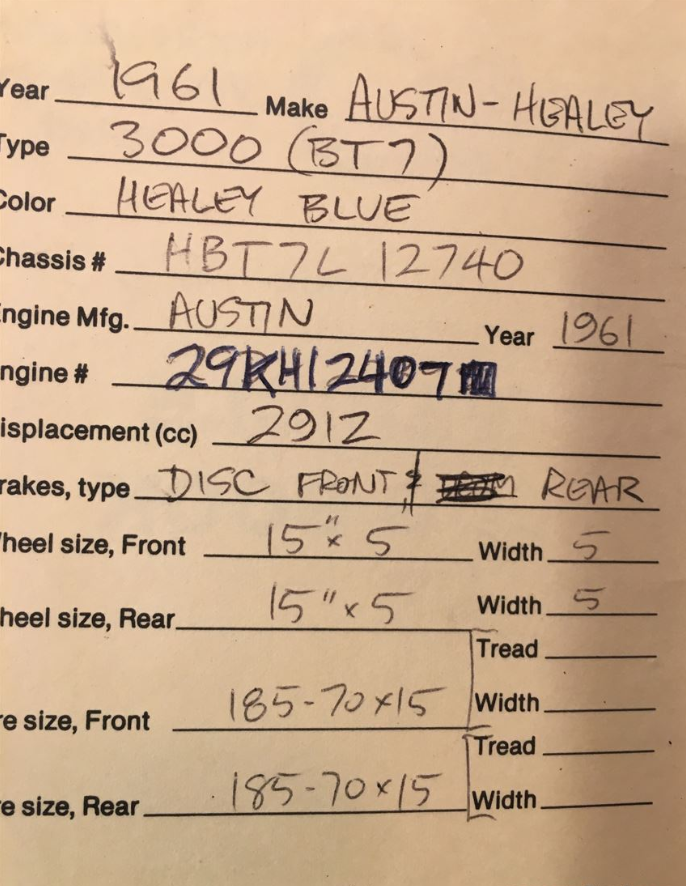 Year 1961 Make AUSTIN-HEALEY
Type 3000 (BT7)
Color HEALEY BLUE
Chassis # HBT7L 12740
ngine Mfg. AUSTIN Year 1961
ngine # 29KH12407
isplacement (cc) 2912
rakes, type DISC FRONT & REAR
heel size, Front 15" x 5 Width 5
heel size, Rear 15" x 5 Width 5
Tread
re size, Front 185-70x15 Width
Tread
re size, Rear 185-70x15 Width